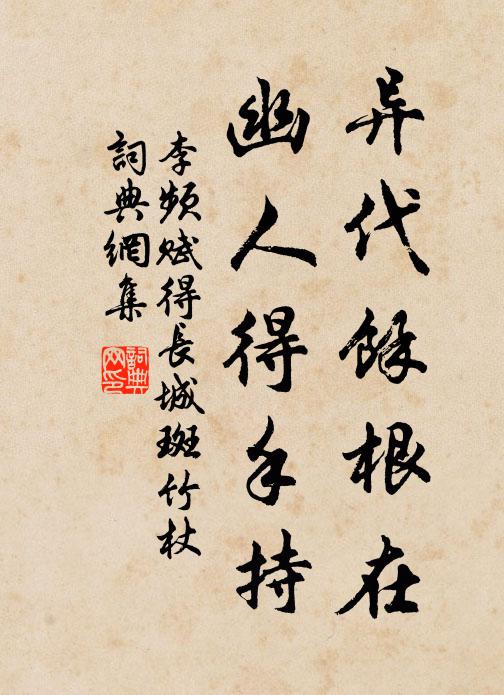 异代餘根在
幽人得手持
李频赋得長城斑竹杖
詞典網集
詞典
网印